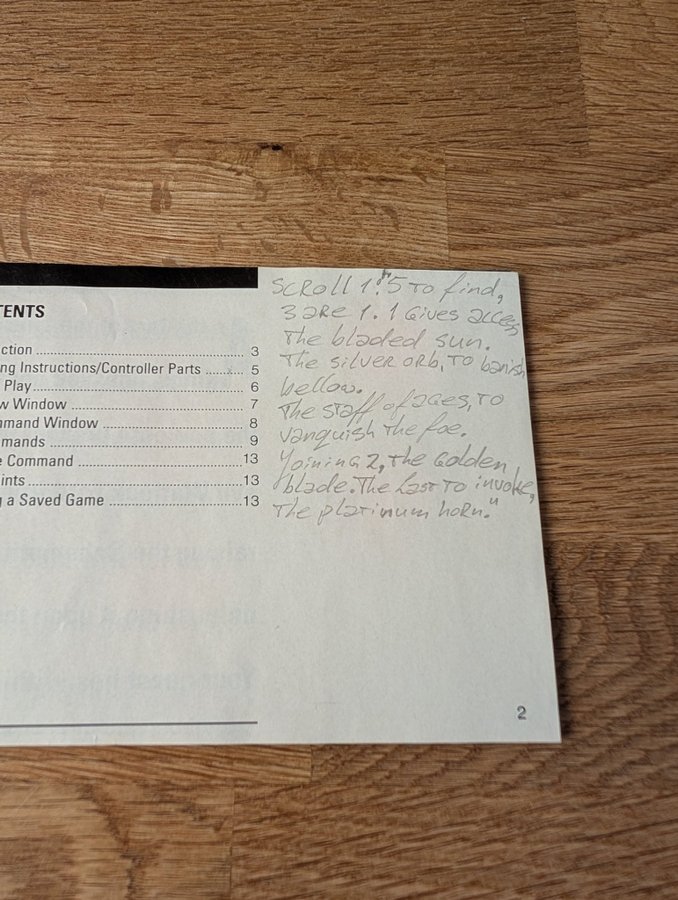 TENTS
ction ........ 3
ng Instructions/Controller Parts ........ 5
Play ........ 6
w Window ........ 7
mmand Window ........ 8
mmands ........ 9
e Command ........ 13
ints ........ 13
g a Saved Game ........ 13
SCROLL 1:"5 TO find,
3 are 1. 1 Gives access,
The bladed sun.
The silver orb, TO banish
bellow.
The staff of ages, TO
vanquish The foe.
Yoining 2, The Golden
blade. The Last TO invoke,
The platinum horn."
2